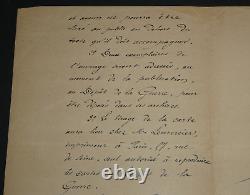 et aucun ne pourra être
livré au public en dehors du
texte qu'il doit accompagner.
2 Deux exemplaires de
l'ouvrage seront adressés, au
moment de la publication,
au Dépôt de la Guerre, pour
être déposés dans ses archives.
3 Le tirage de la carte
aura lieu chez Mr Lemercier,
imprimeur à Paris, 57, rue
de Seine, seul autorisé à reproduire
les cartes de la
Guerre.
© www.picclickimg.com